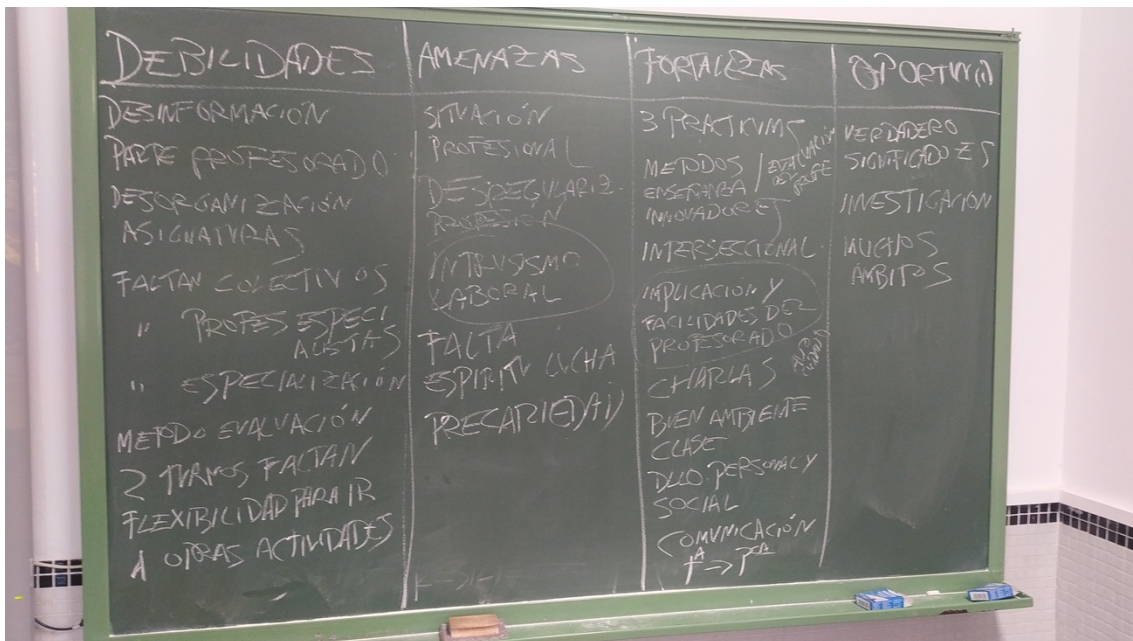 DEBILIDADES
DESINFORMACIÓN
PARTE PROFESORADO
DESORGANIZACIÓN
ASIGNATURAS
FALTAN COLECTIVOS
" PROFES ESPECI
ALISTAS
" ESPECIALIZACIÓN
METODO EVALUACIÓN
2 TURNOS FALTAN
FLEXIBILIDAD PARA IR
A OTRAS ACTIVIDADES
AMENAZAS
SITUACIÓN
PROFESIONAL
DESREGULARIZ.
PROFESION
INTRUSISMO
LABORAL
FALTA
ESPIRITU LUCHA
PRECARIEDAD
FORTALEZAS
3 PRACTICUMS
METODOS / EVALUACIÓN
ENSEÑANZA PROFE
INNOVADORES
INTERSECCIONAL
IMPLICACION Y
FACILIDADES DEL
PROFESORADO
CHARLAS
BUEN AMBIENTE
CLASE
DLLO PERSONAL Y
SOCIAL
COMUNICACIÓN
Tª → Pᶜᵃ
OPORTUN
VERDADERO
SIGNIFICADO ES
INVESTIGACION
MUCHOS
AMBITOS